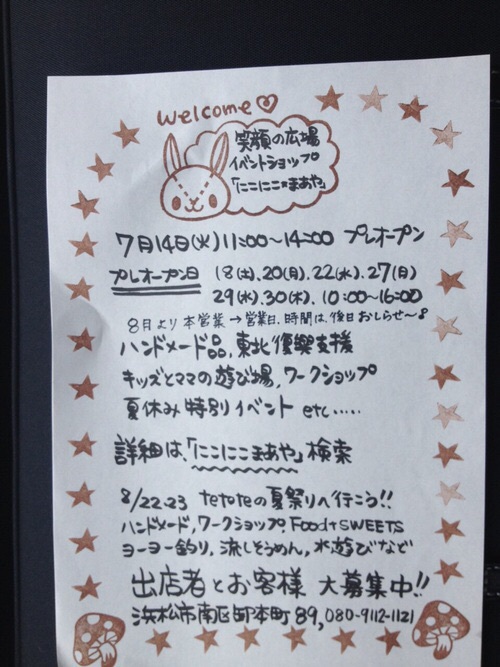 welcome
笑顔の広場
イベントショップ
「にこにこ★まあや」
7月14日(火)11:00〜14:00 プレオープン
プレオープン日 18(土).20(月).22(水).27(月)
29(水).30(木). 10:00〜16:00
8月より本営業→営業日.時間は、後日おしらせ〜8
ハンドメード品,東北復興支援
キッズとママの遊び場,ワークショップ
夏休み特別イベント etc.....
詳細は、「にこにこまあや」検索
8/22.23 teteteの夏祭りへ行こう!!
ハンドメード,ワークショップFood+SWEETS
ヨーヨー釣り,流しそうめん,水遊びなど
出店者とお客様 大募集中!!
浜松市南区卸本町89,080-9112-1121